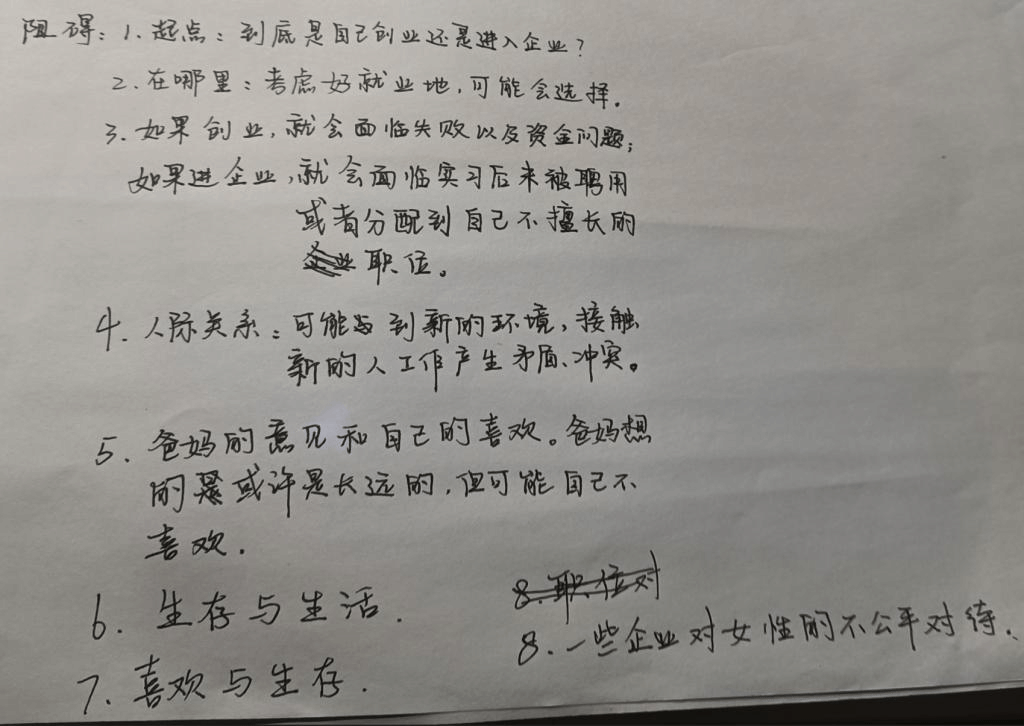 阻碍：1.起点：到底是自己创业还是进入企业？
2.在哪里：考虑好就业地，可能会选择。
3.如果创业，就会面临失败以及资金问题；
如果进企业，就会面临实习后未被聘用
或者分配到自己不擅长的
职位。
4.人际关系：可能到新的环境，接触
新的人工作产生矛盾、冲突。
5.爸妈的意见和自己的喜欢。爸妈想
的或许是长远的，但可能自己不
喜欢.
6.生存与生活.
7.喜欢与生存.
8.职位对
8.一些企业对女性的不公平对待.